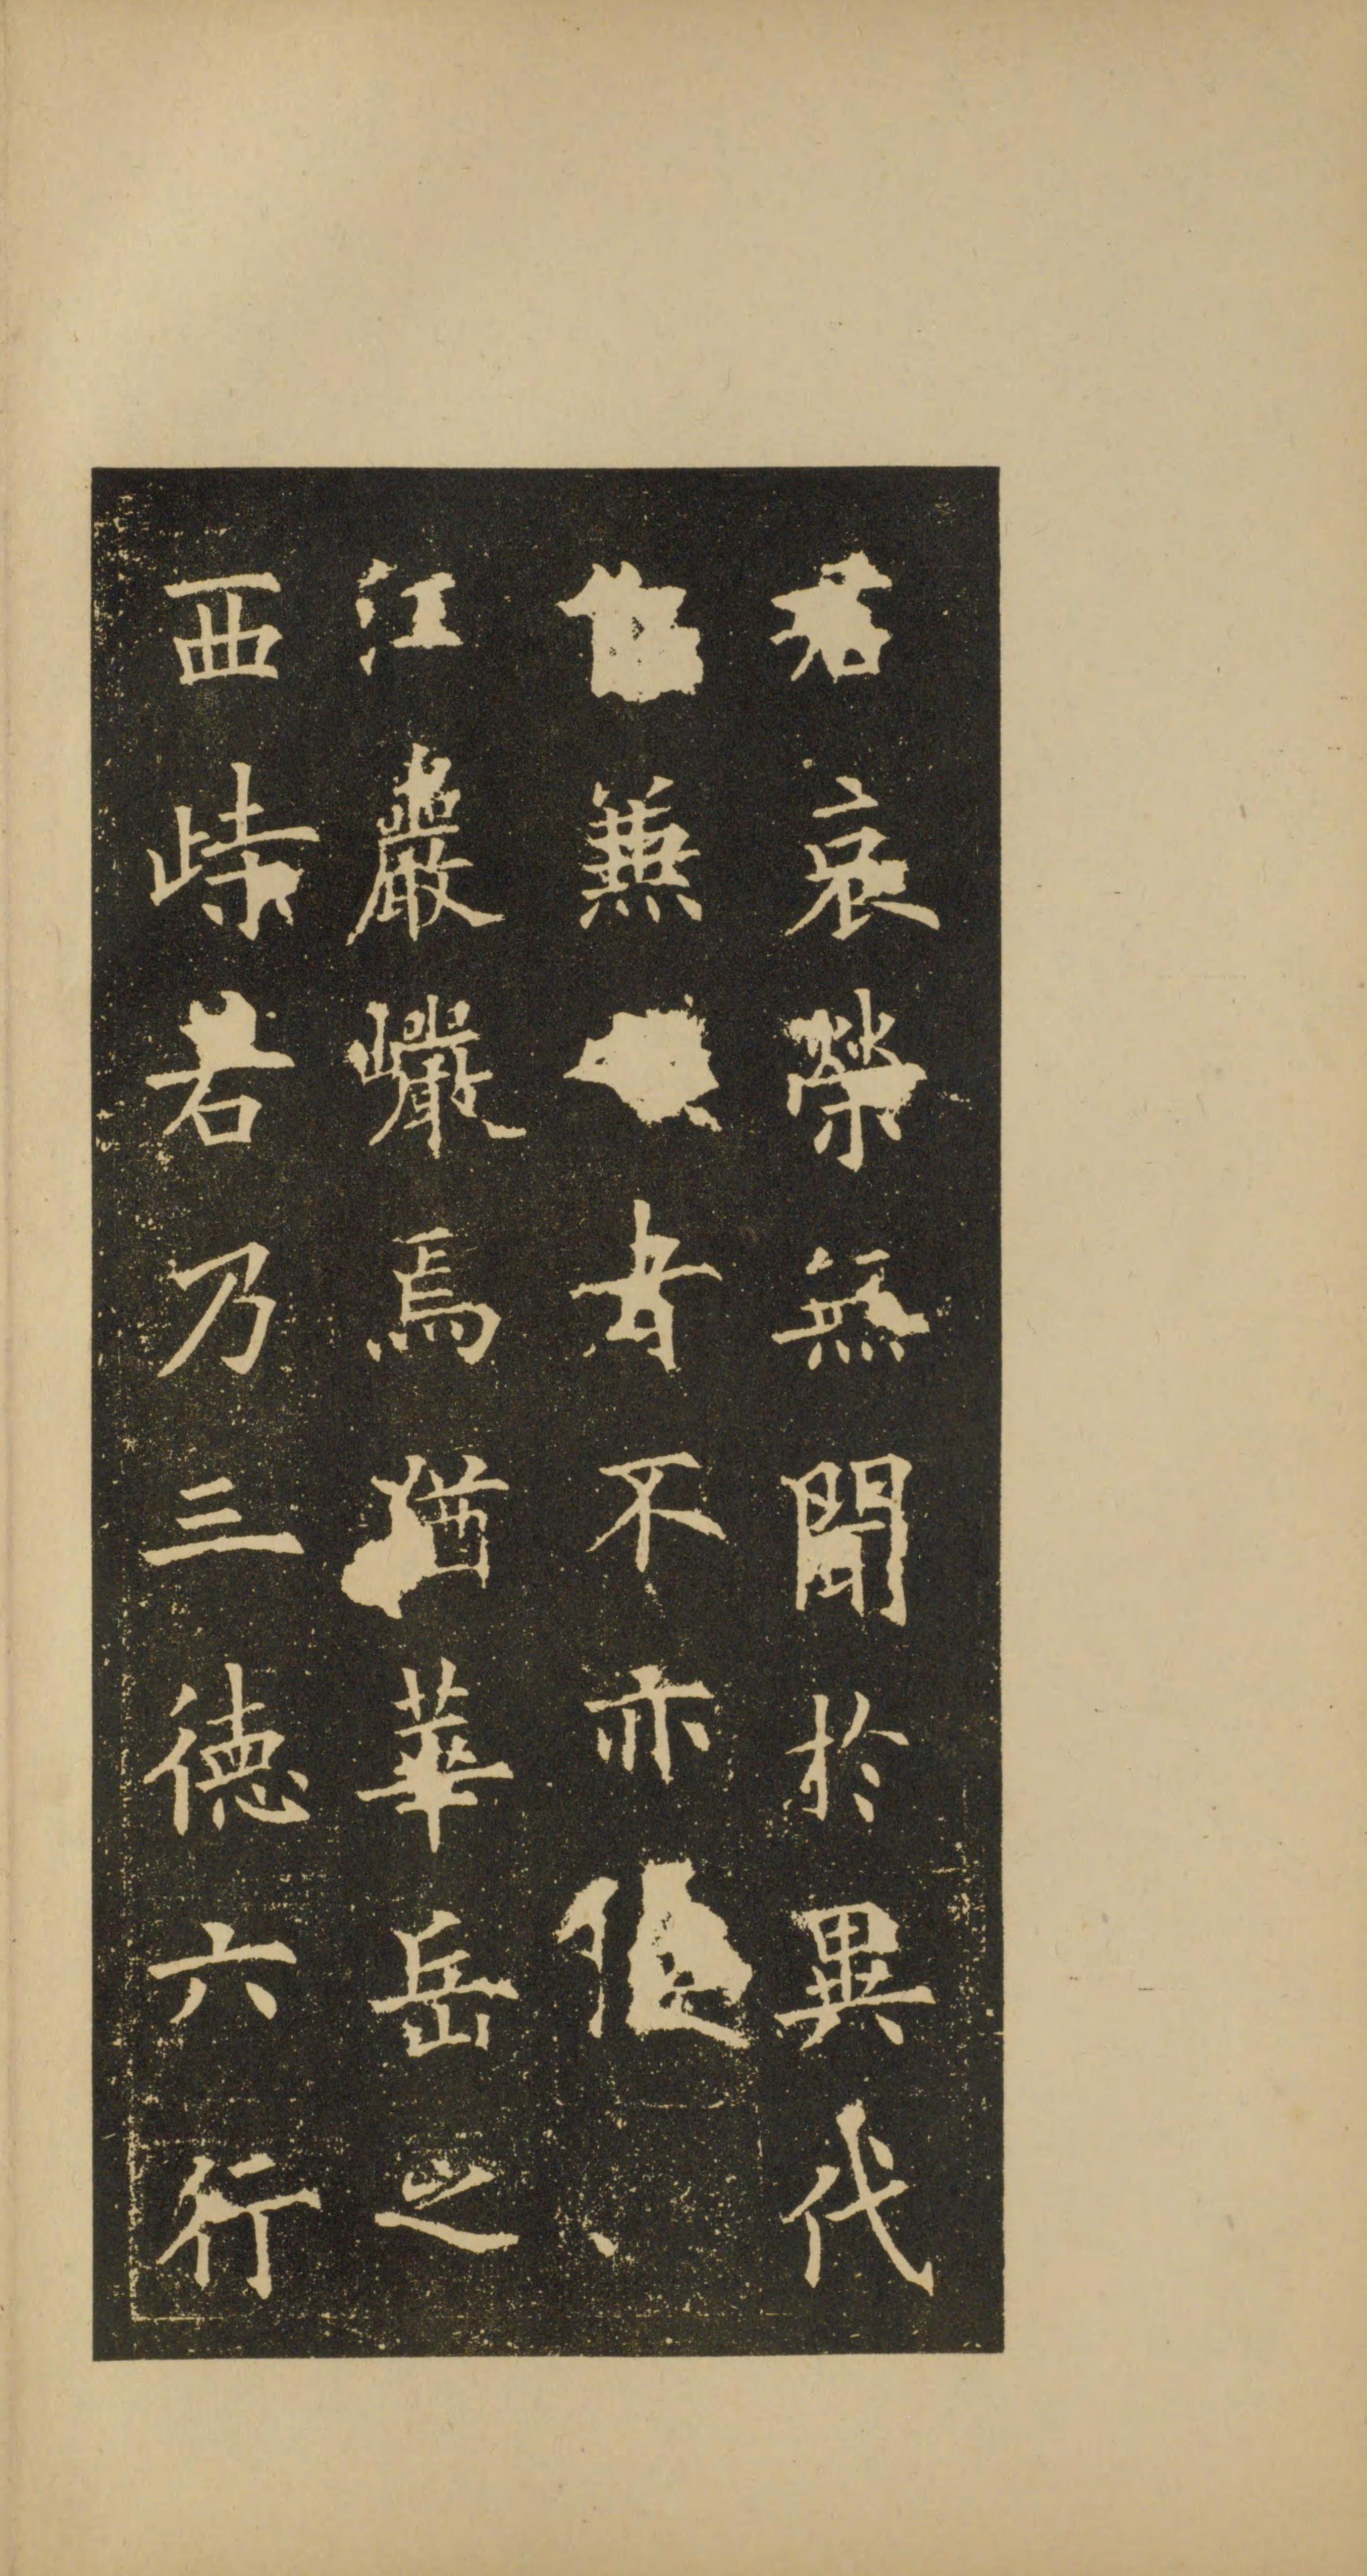 若哀榮無聞於異代
兼者不亦
江嚴巗焉猶華岳之
西峙若乃三德六行